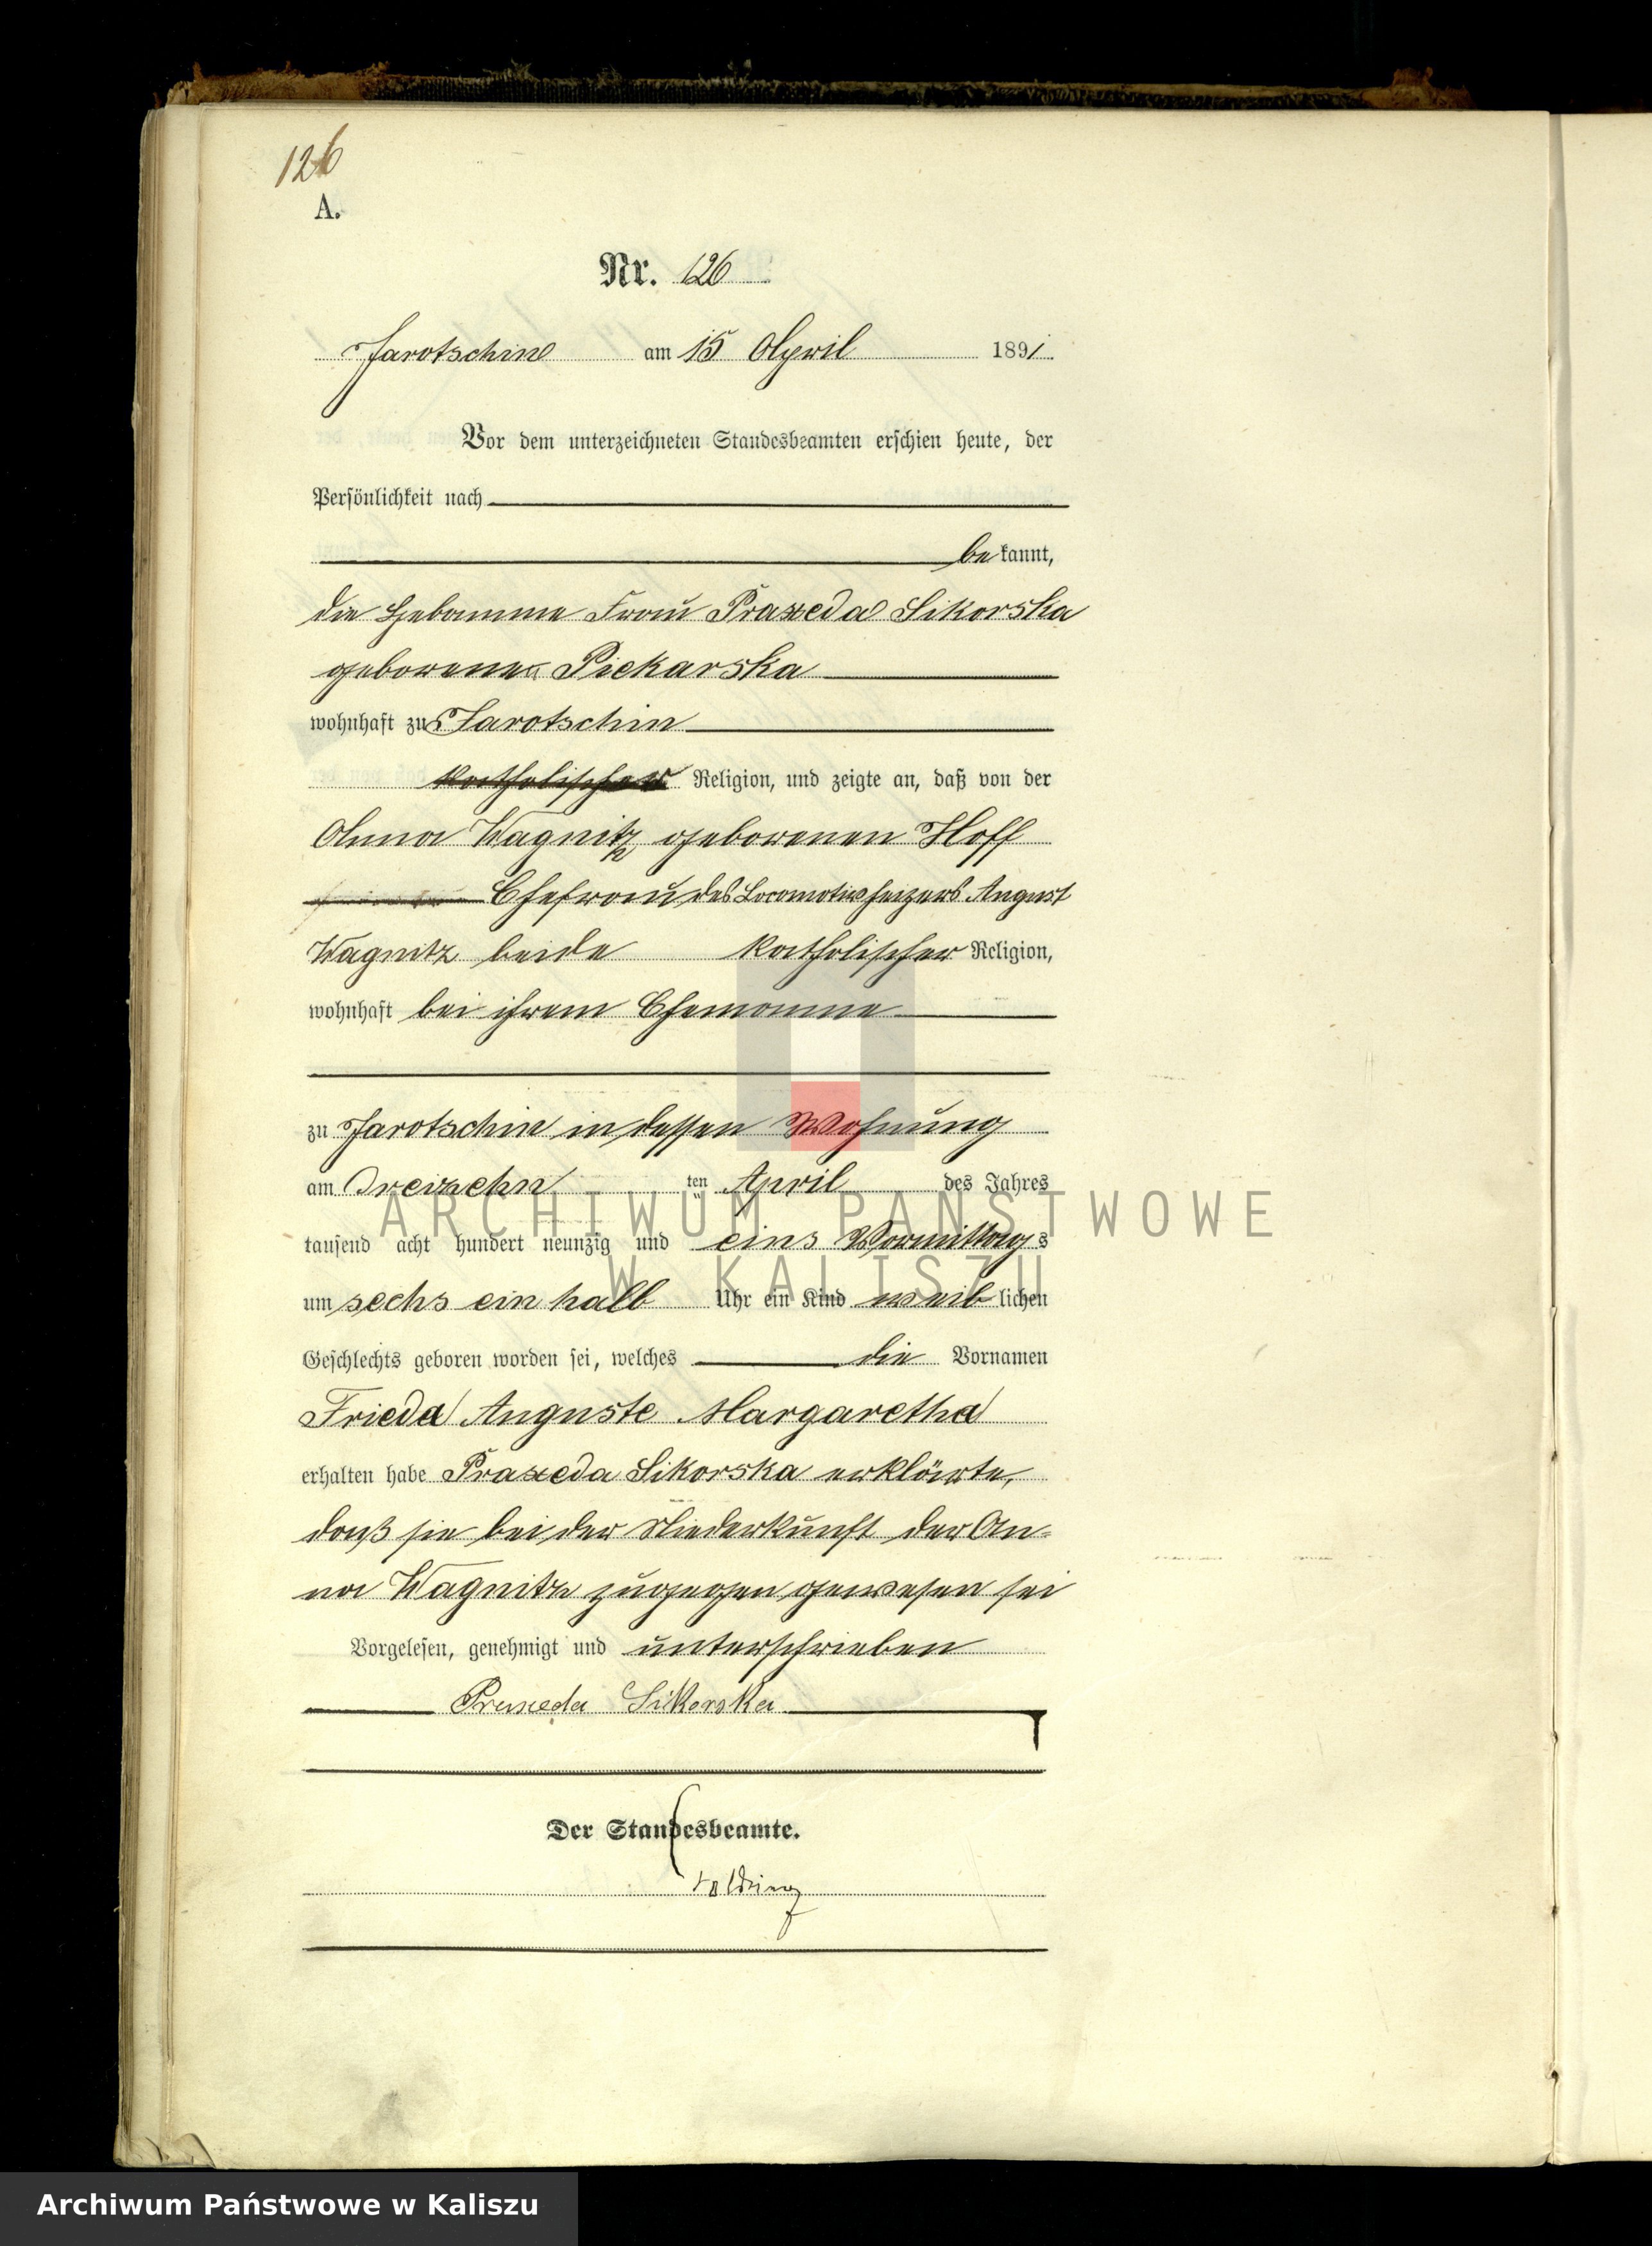 126
A.
Nr. 126
Jarotschin am 15 April 1891.
Vor dem unterzeichneten Standesbeamten erschien heute, der
Persönlichkeit nach
bekannt,
die Hebamme Frau Praxeda Sikorska
geborene Piekarska
wohnhaft zu Jarotschin
katholischer Religion, und zeigte an, daß von der
Anna Wagnitz, geborenen Hoff
Ehefrau des Locomotivheizers August
Wagnitz beide katholischer Religion,
wohnhaft bei ihrem Ehemanne
zu Jarotschin in dessen Wohnung
am dreizehn ten April des Jahres
tausend acht hundert neunzig und eins Vormittags
um sechs ein halb Uhr ein Kind weiblichen
Geschlechts geboren worden sei, welches die Vornamen
Frieda Auguste Margaretha
erhalten habe Praxeda Sikorska erklärte,
daß sie bei der Niederkunft der An=
na Wagnitz zugegen gewesen sei
Vorgelesen, genehmigt und unterschrieben
Praxeda Sikorska
Der Standesbeamte.
ARCHIWUM PAŃSTWOWE
W KALISZU
Archiwum Państwowe w Kaliszu